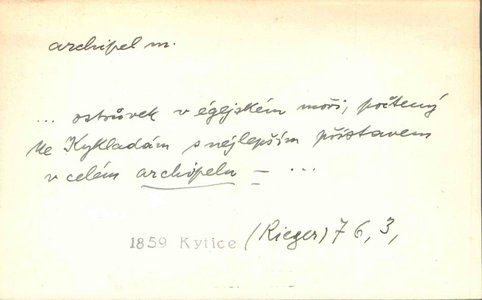 archipel m.
... ostrůvek v égejském moři, počtený
ke Kykladám s nejlepším přístavem
v celém archipelu – ...
1859 Kytice (Rieger) 7 6, 3,